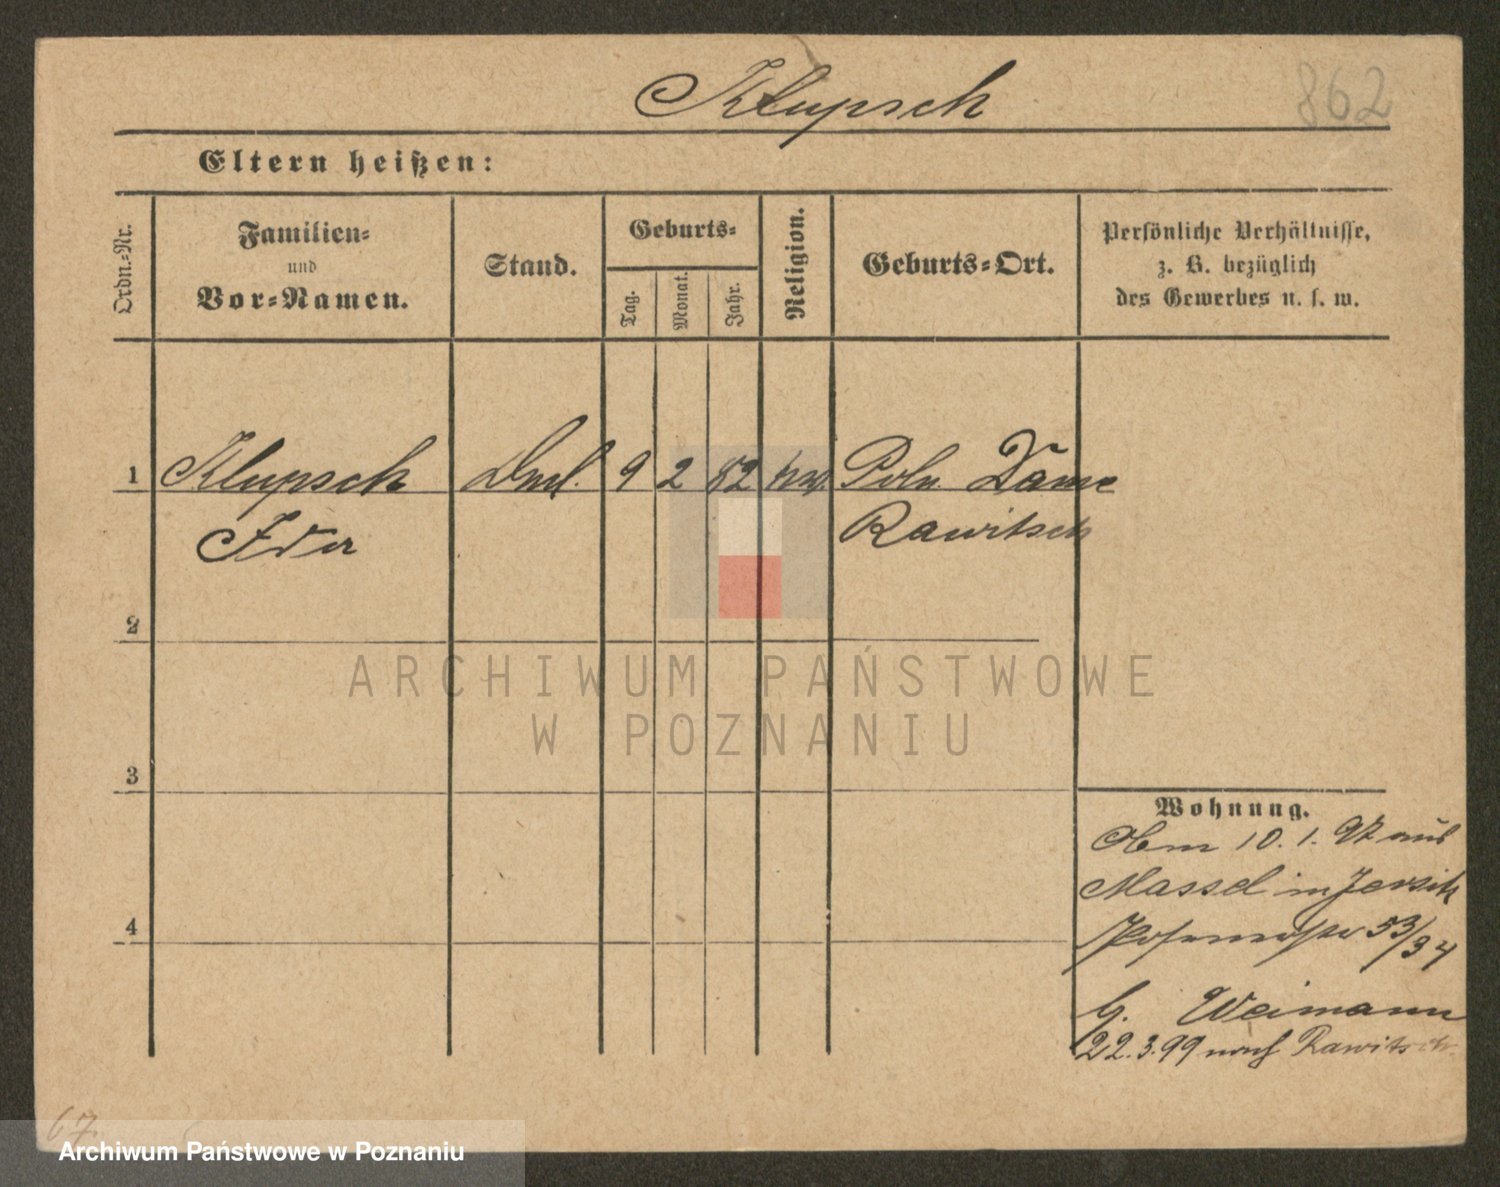 Klupsch
862
Eltern heißen:
Ordn.-Nr.
Familien- und Vor-Namen.
Stand.
Geburts-
Tag.
Monat.
Jahr.
Religion.
Geburts-Ort.
Persönliche Verhältnisse,
z. B. bezüglich
des Gewerbes u. s. w.
1 Klupsch 9 2 82 Poln Damme
Ida Rawitsch
2
3
4
Wohnung.
10. 1. 97 aus
Massel in Jersitz
53/34
b. Weimann
22.3.99 nach Rawitsch
ARCHIWUM PAŃSTWOWE
W POZNANIU
67
Archiwum Państwowe w Poznaniu